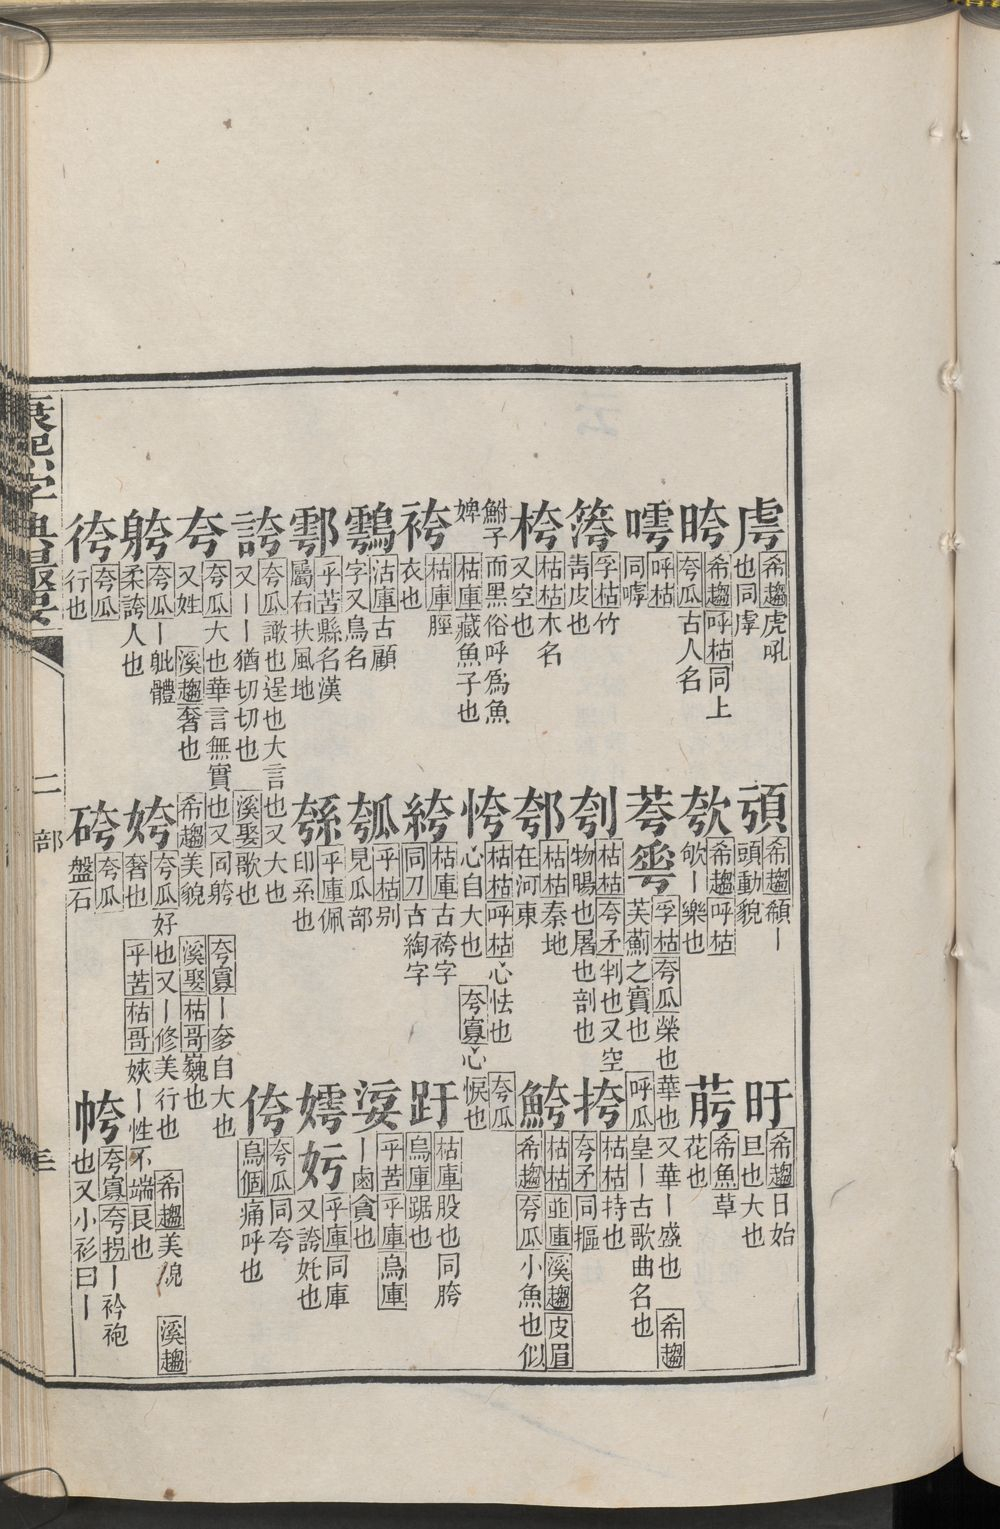 虖 希趨虎吼也同虖
頊 希趨頯丨頭動貌
旴 希趨日始旦也大也
晇 希趨呼枯同上 夸瓜古人名
欨 希趨呼枯欨丨樂也
蕚 希魚草花也
嘑 呼枯同嘑
荂 𠌶 孚枯夸瓜榮也華也又華丨盛也 希趨芙薊之實也 呼瓜皇丨古歌曲名也
筟 孚枯竹靑皮也
刳 枯枯夸矛判也又空物腸也屠也剖也
挎 枯枯持也 夸矛同摳
桍 枯枯木名又空也
郀 枯枯秦地在河東
鮬 枯枯並盧溪趨皮眉希趨夸瓜小魚也似鮒子而黑俗呼爲魚婢 枯庫藏魚子也
恗 枯枯呼枯心怯也心自大也 夸寡心悞也
袴 枯庫脛衣也
絝 枯庫古袴字 同刀古綯字
趶 枯庫股也同胯 烏庫踞也
鸔 沽庫古顧字又鳥名
瓠 乎枯別見瓜部
乎苦乎庫烏庫丨鹵貪也
鄠 乎苦縣名漢屬右扶風地
綔 乎庫佩印系也
嫮 㛏 乎庫同庫又誇奼也
誇 夸瓜譀也逞也大言也又大也又丨丨猶切切也 溪娶歌也
侉 夸瓜同夸 烏個痛呼也
夸 夸瓜大也華言無實也又同骻又姓 溪趨奢也 希趨美貌 夸寡丨奓自大也 溪娶枯哥巍也
骻 夸瓜丨躰體柔誇人也
姱 夸瓜好也又丨修美行也 希趨美貌 溪趨奢也 乎苦枯哥㛍丨性不端良也
帎 夸寡夸拐丨衿袍也又小衫曰丨
荂 夸瓜行也
硳 夸瓜盤石
康熙字典撮要
二部
三